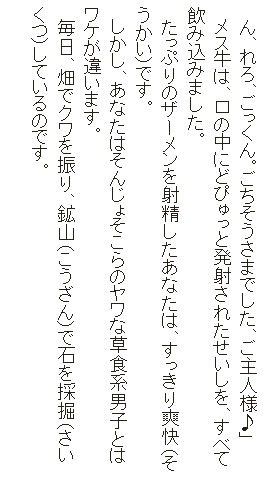 ん、れろ、ごっくん。ごちそうさまでした、ご主人様♪」
メス牛は、口の中にどぴゅっと発射されたせいしを、すべて
飲み込みました。
たっぷりのザーメンを射精したあなたは、すっきり爽快(そ
うかい)です。
しかし、あなたはそんじょそこらのヤワな草食系男子とは
ワケが違います。
毎日、畑でクワを振り、鉱山(こうざん)で石を採掘(さい
くつ)しているのです。